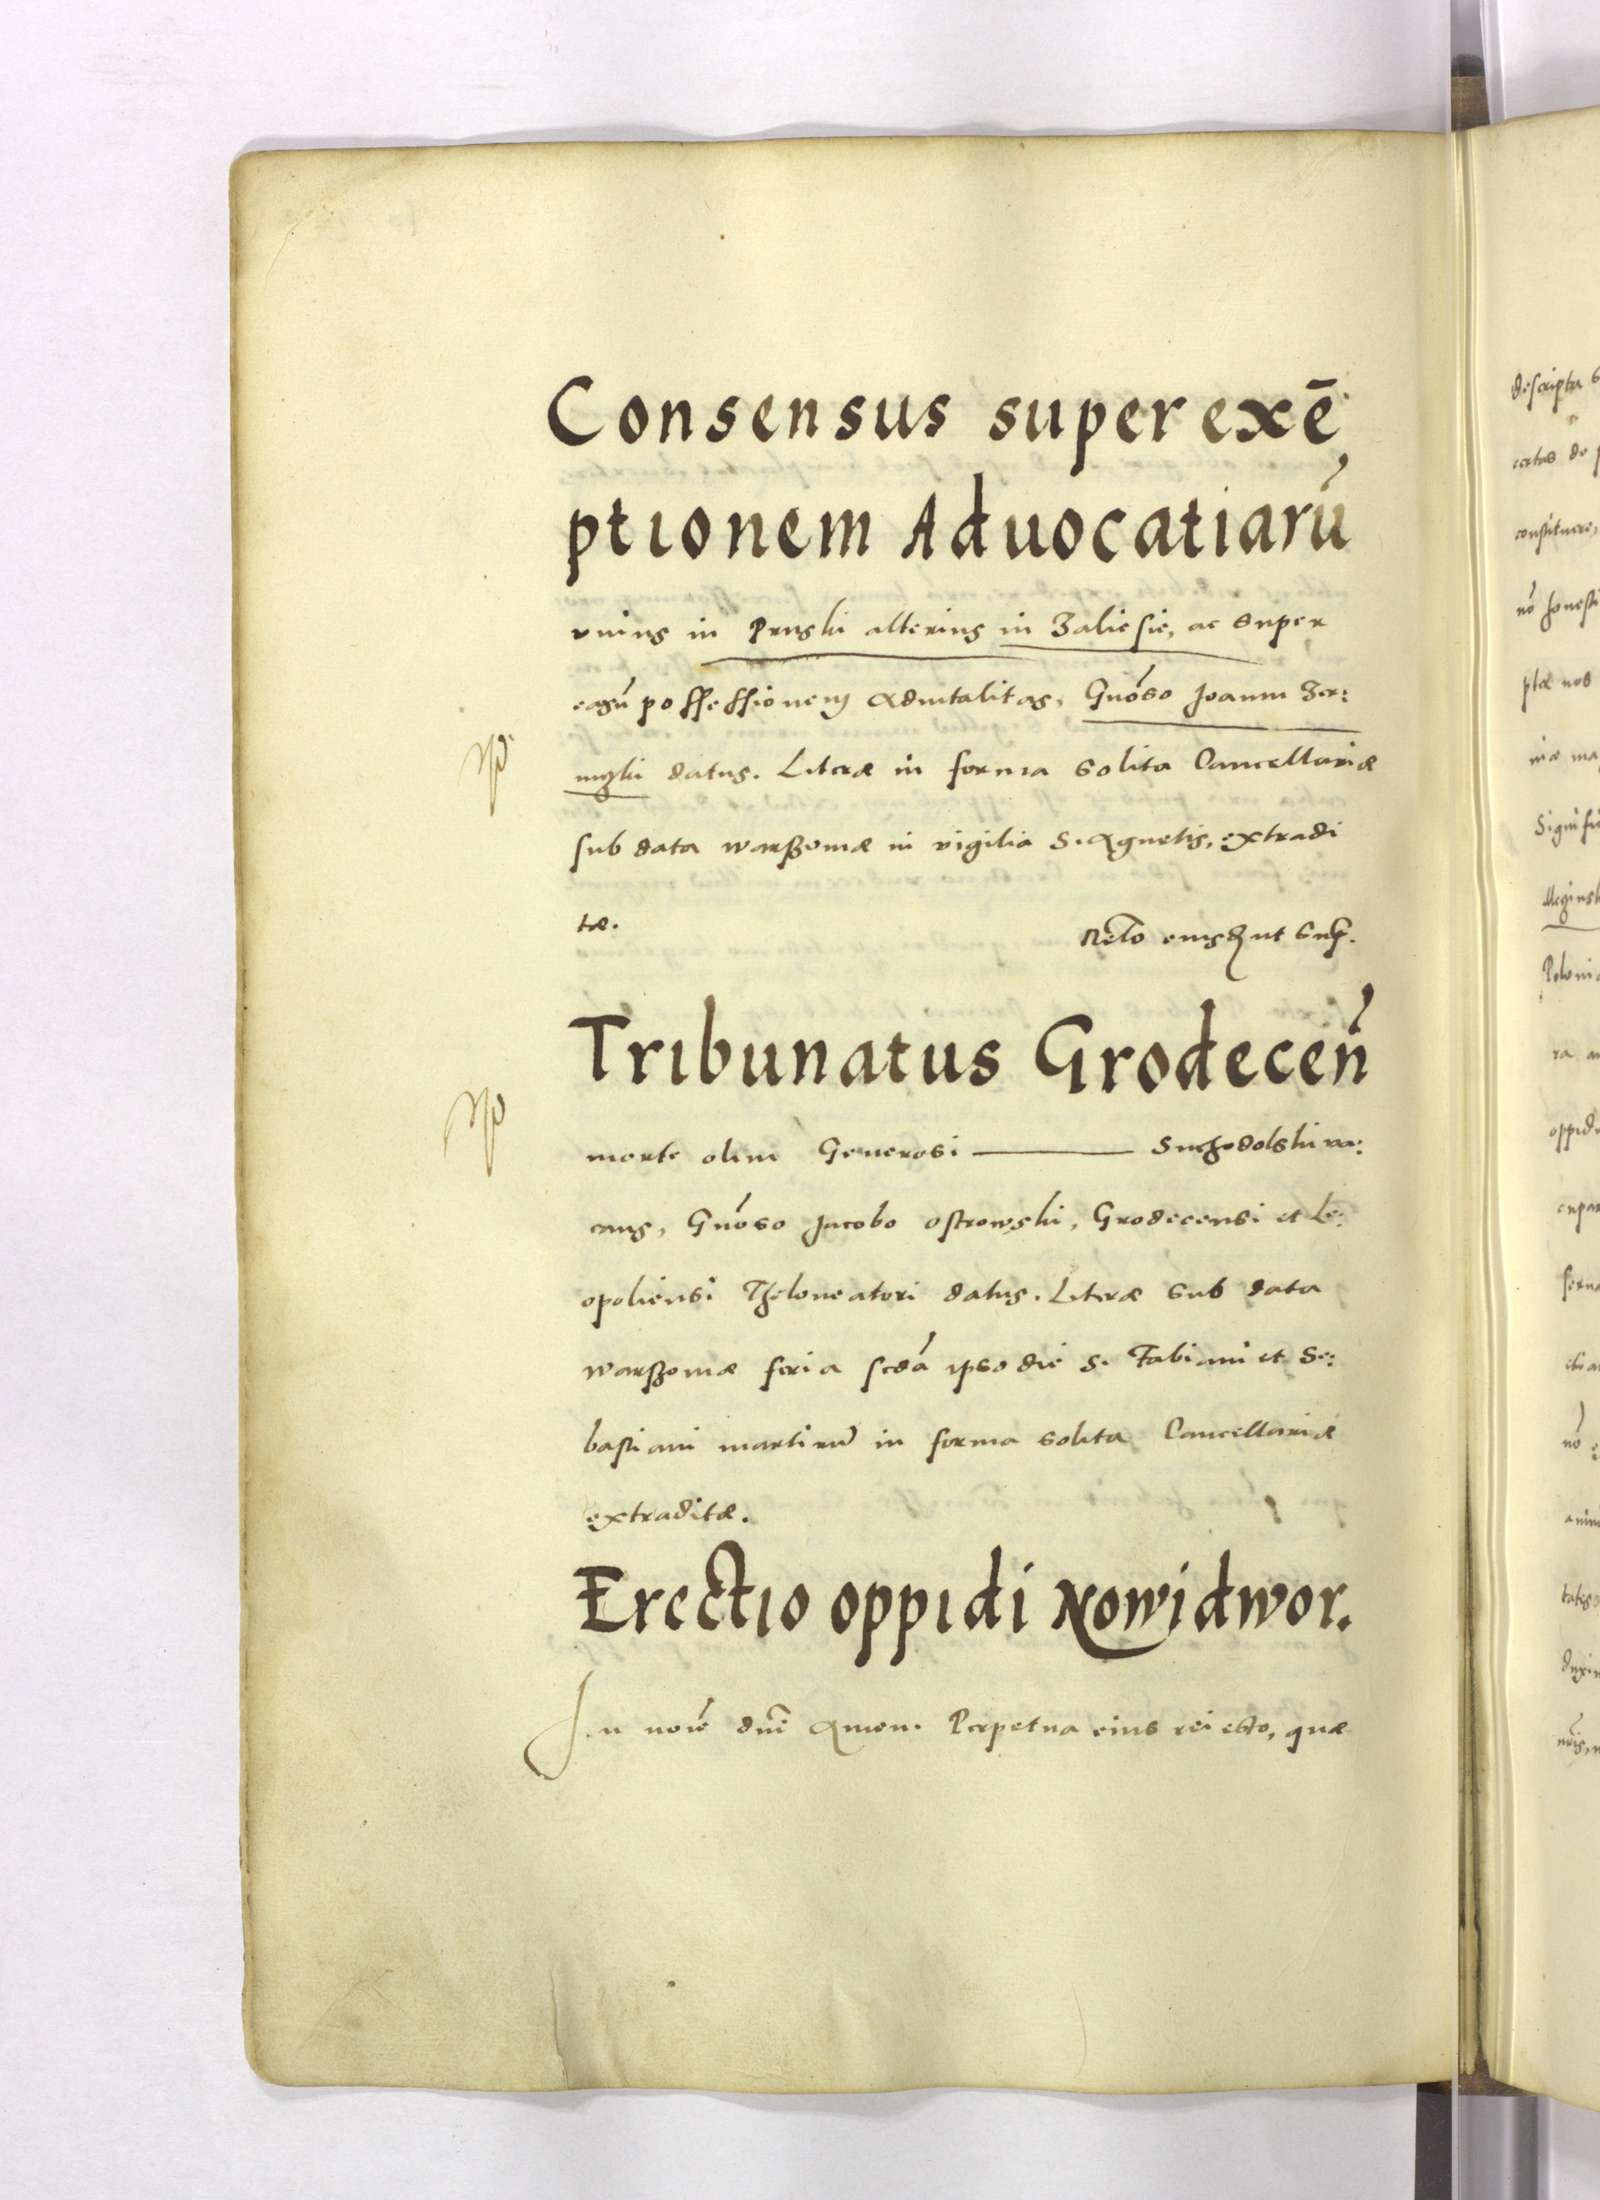 Consensus super exē
ptionem Aduocatiarū
vnius in Pruski alterius in Zaliesie, ac super
earū possessionem Aduitalitas, Gnōso Joanni Zer:
datus. Literæ in forma solita Cancellariæ
sub data warszouiæ in vigilia S. Agnetis, extradi
tæ.
Relō eiusdem ut sup.
Tribunatus Grodeceñ
morte olim Generosi ——— Suchodolski va:
cans, Gnōso Jacobo ostrowski, Grodecensi et Le:
opoliensi Theloneatori datus. Literæ sub data
warszouiæ feria scdā ipso die S. Fabiani et Se:
bastiani martirū in forma solita Cancellariæ
extraditæ.
Erectio oppidi Nowidwor.
In noīe dnī Amen. Perpetua eius rei esto, quæ
descripta
certas de
constituere,
nō honesti
ptæ nos
Polonia
ra
oppidu